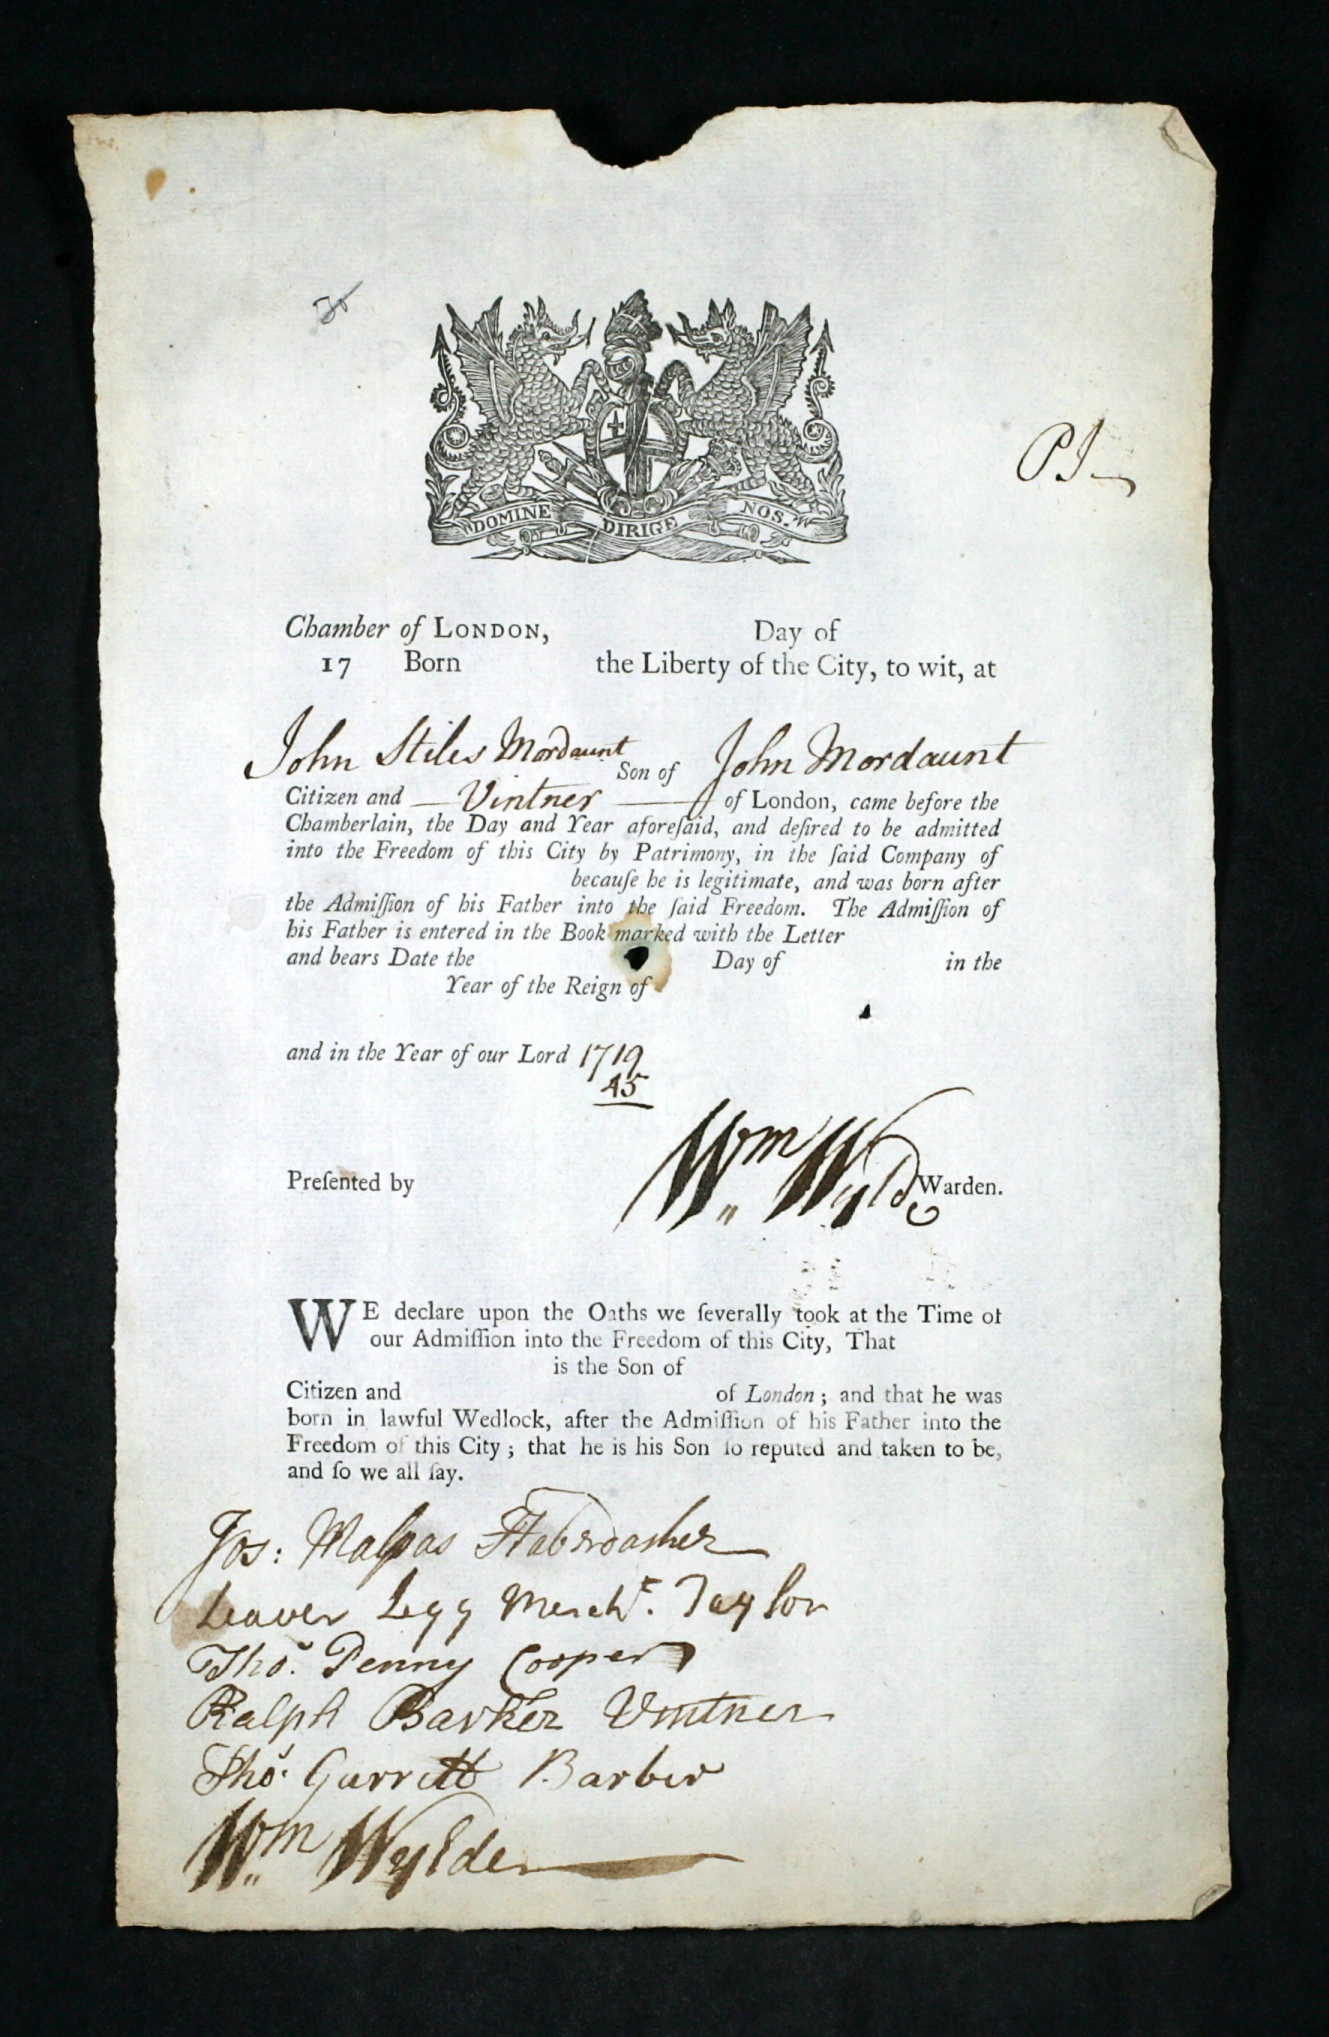 PJ
DOMINE DIRIGE NOS.
Chamber of LONDON, Day of
17 Born the Liberty of the City, to wit, at
John Stiles Mordaunt Son of John Mordaunt
Citizen and Vintner of London, came before the
Chamberlain, the Day and Year aforeſaid, and deſired to be admitted
into the Freedom of this City by Patrimony, in the ſaid Company of
becauſe he is legitimate, and was born after
the Admiſſion of his Father into the ſaid Freedom. The Admiſſion of
his Father is entered in the Book marked with the Letter
and bears Date the Day of in the
Year of the Reign of
and in the Year of our Lord 1719
45
Preſented by Wm Wylde Warden.
WE declare upon the Oaths we ſeverally took at the Time of
our Admiſſion into the Freedom of this City, That
is the Son of
Citizen and of London; and that he was
born in lawful Wedlock, after the Admiſſion of his Father into the
Freedom of this City; that he is his Son ſo reputed and taken to be,
and ſo we all ſay.
Jos: Malpas Haberdasher
Leaver Legg Mercht. Taylor
Thos. Penny Cooper
Ralph Barker Vintner
Thos. Garrett Barber
Wm Wylde